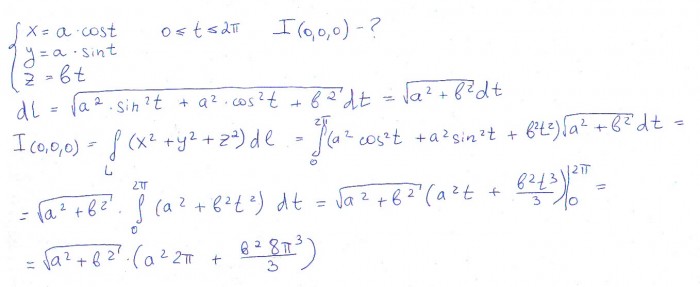 { x = a · cost    0 ≤ t ≤ 2π    I(0,0,0) - ?
y = a · sint
z = bt
dl = √(a² · sin²t + a² · cos²t + b²) dt = √(a² + b²) dt
I(0,0,0) = ∫_L (x² + y² + z²) dl = ∫₀^2π (a² cos²t + a² sin²t + b²t²) √(a² + b²) dt =
= √(a² + b²) · ∫₀^2π (a² + b²t²) dt = √(a² + b²) (a²t + b²t³/3) |₀^2π =
= √(a² + b²) · (a² 2π + b² 8π³/3)